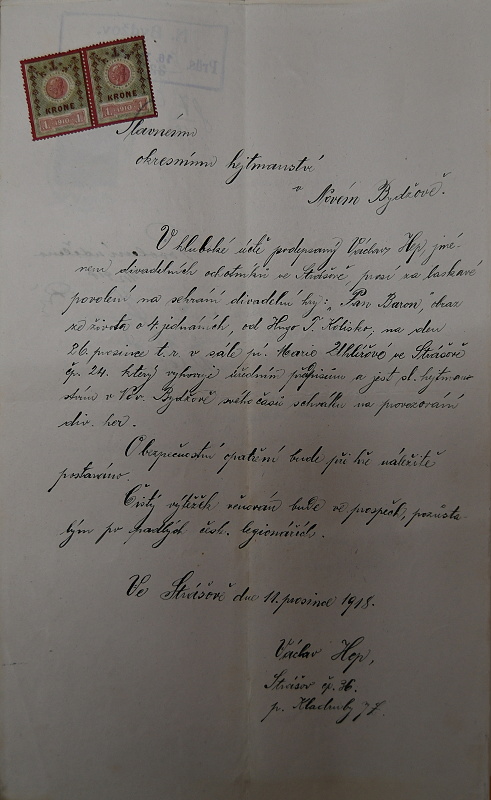 1 1
KRONE KRONE
1 1910 1 1 1910 1
Slavnému
okresnímu hejtmanství
v
Novém Bydžově.
V hluboké úctě podepsaný Václav Hep, jmé-
nem divadelních ochotníků ve Strašově, prosí za laskavé
povolení na sehrání divadelní hry: "Pan Baron," obraz
ze života o 4 jednáních, od Hugo T. Kotisko, na den
26. prosince t. r. v sále pí. Marie Uhlířové ve Strašově
čp. 24. který vyhovuje úředním předpisům a jest sl. hejtman-
stvím v Nov. Bydžově svého času schválen na provozování
div. her.
Obezpečnostní opatření bude při hře náležitě
postaráno.
Čistý výtěžek věnován bude ve prospěch, pozůsta-
lým po padlých česk. legionářích.
Ve Strašově dne 11. prosince 1918.
Václav Hep,
Strašov čp. 36.
p. Kladruby